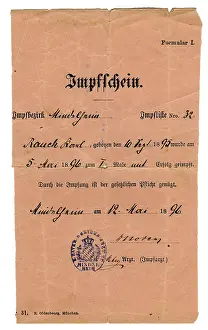 Formular I.
Impfschein.
Impfbezirk Mindelheim Impfliste Nro. 32
Rauch Karl, geboren den 10 Sept 1895 wurde am
5 Mai 1896 zum I. Male mit Erfolg geimpft.
Durch die Impfung ist der gesetzlichen Pflicht genügt.
Mindelheim am 12 Mai 1896
Arzt. (Impfarzt.)
31. R. Oldenbourg, München.